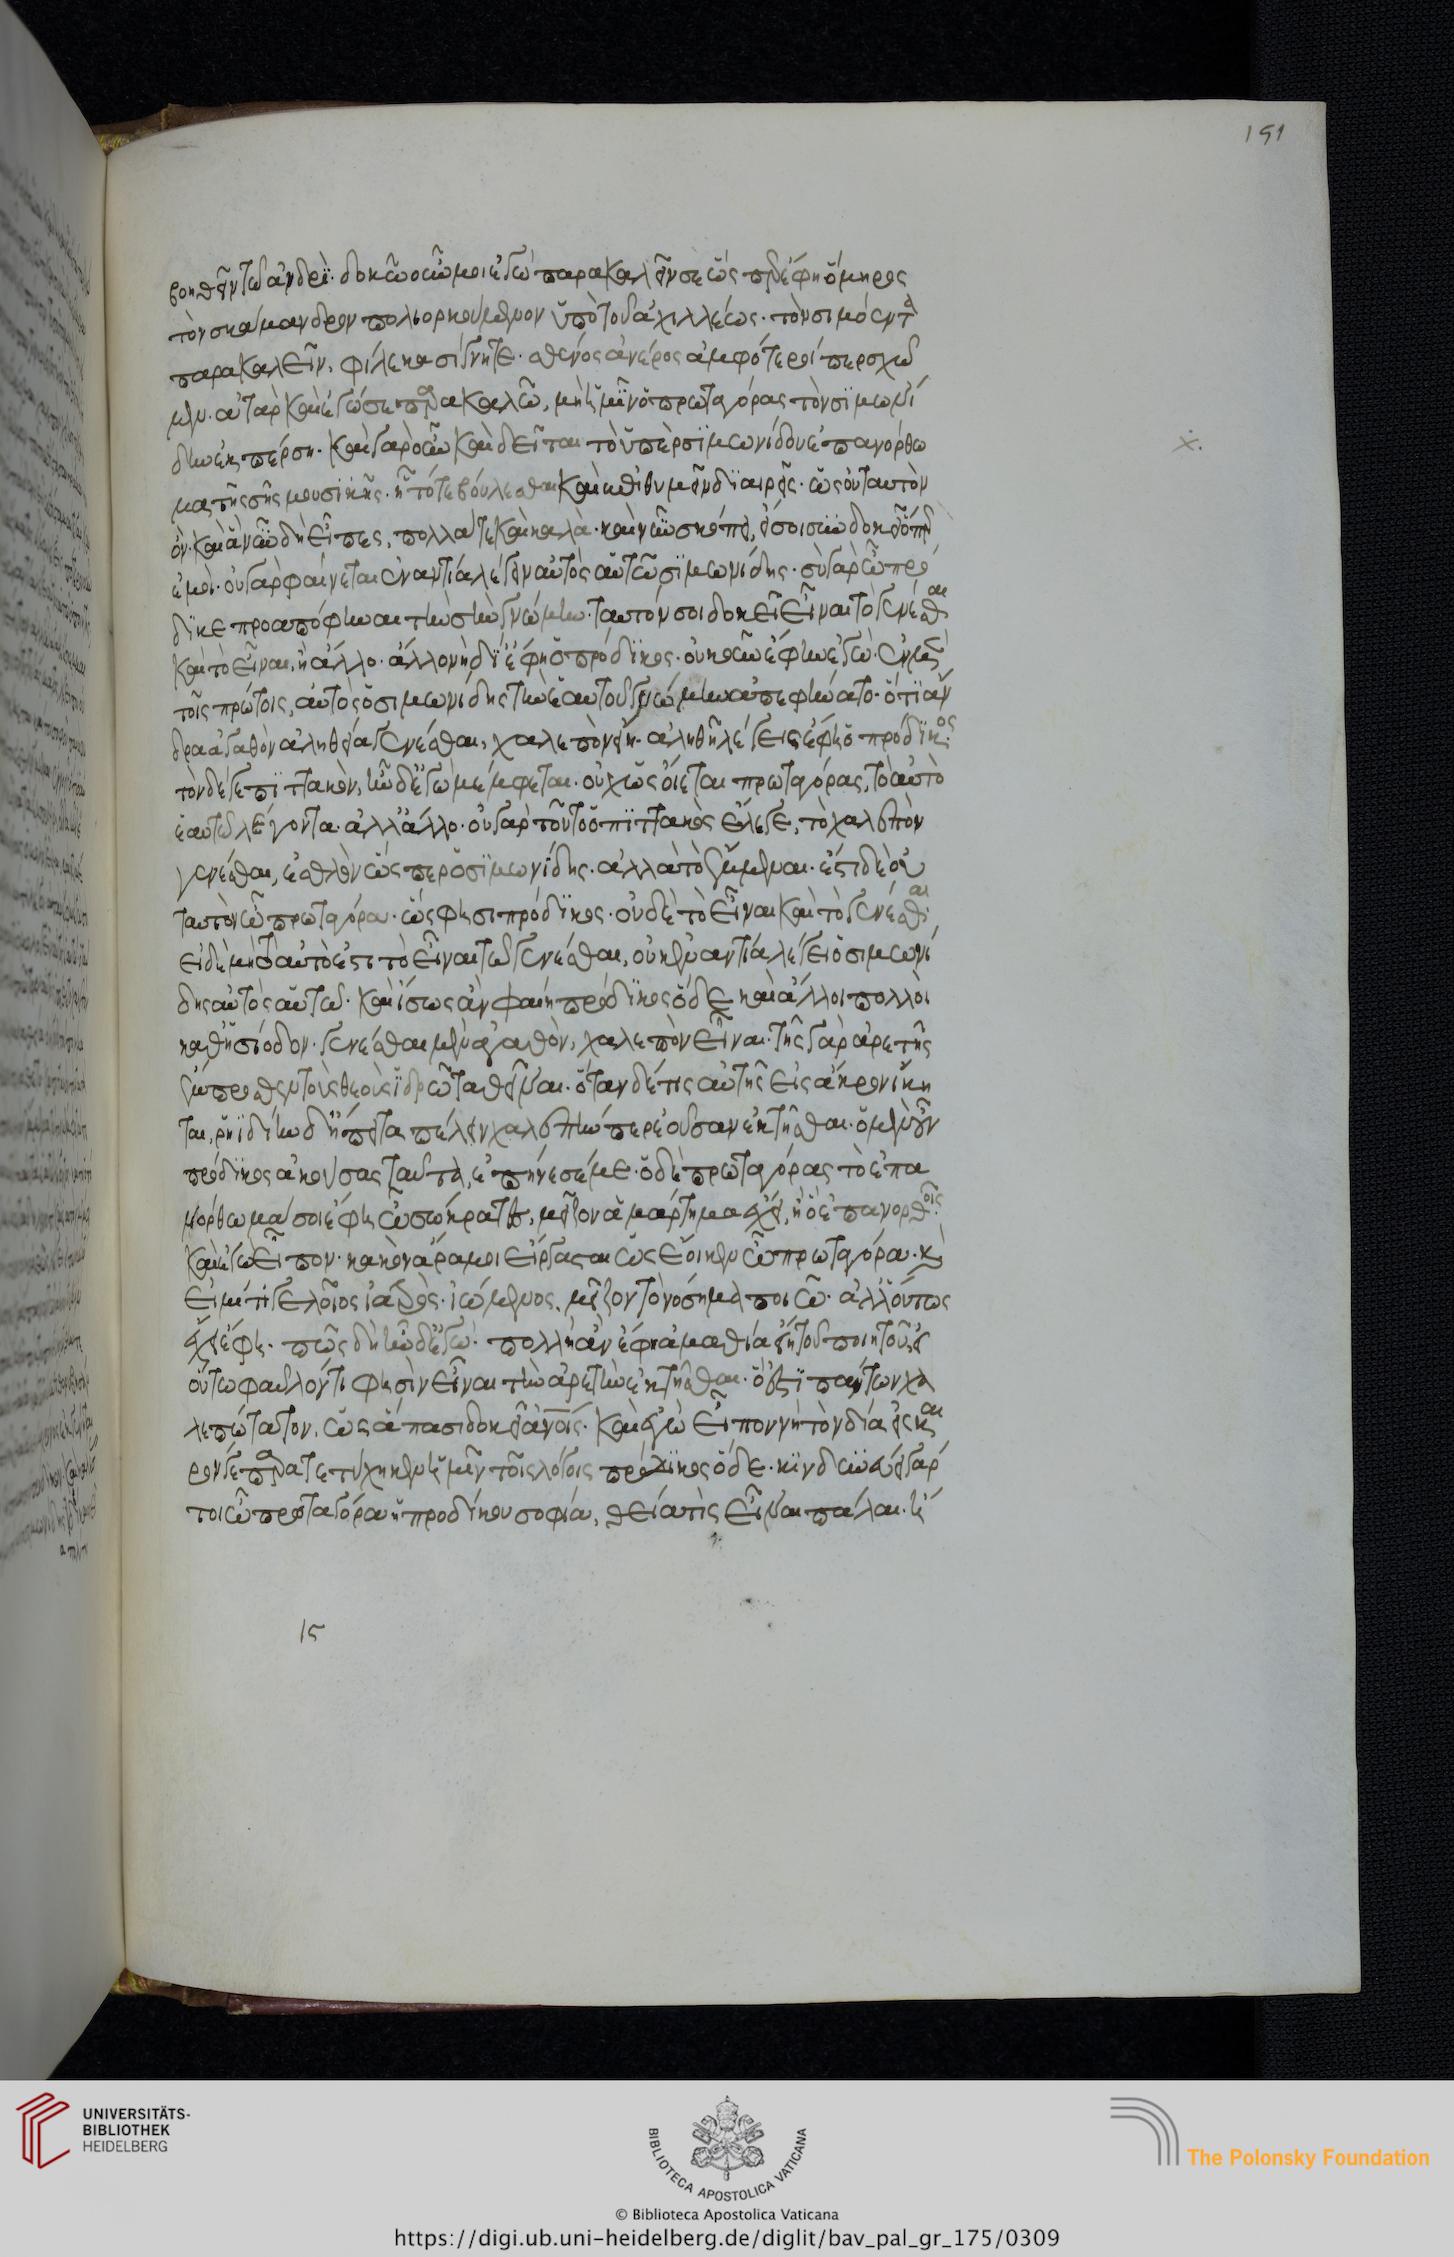 βοηθεῖν τῷ ἀνδρί. δοκῶ οὖν μοι ἐγὼ παρακαλεῖν σε ὥσπερ ἔφη ὅμηρος
τὸν σκάμανδρον πολιορκούμενον ὑπὸ τοῦ ἀχιλλέως. τὸν σιμόεντα
παρακαλεῖν, φίλε κασίγνητε. σθένος ἀνέρος ἀμφότεροί περ σχῶ
μεν. ἀτὰρ καὶ ἐγώ σε παρακαλῶ, μὴ ἡμῖν ὁ πρωταγόρας τὸν σϊμωνί
δην ἐκπέρση. καὶ γὰρ οὖν καὶ δεῖται τὸ ὑπὲρ σϊμωνίδου ἐπανόρθω
μα τῆς σῆς μουσϊκῆς. ἧ τό τε βούλεσθαι καὶ ἐπιθυμεῖν δϊαιρεῖς. ὡς οὐ ταυτὸν
ὄν. καὶ ἃ νῦν δὴ εἶπες, πολλά τε καὶ καλὰ. καὶ νῦν σκόπει, εἴ σοι συνδοκεῖ ὅπερ
ἐμοί. οὐ γὰρ φαίνεται ἐναντία λέγειν αὐτὸς αὑτῷ σϊμωνίδης. σὺ γὰρ ὦ πρό
δϊκε προαπόφηναι τὴν σὴν γνώμην. ταυτόν σοι δοκεῖ εἶναι τὸ γενέσθαι
καὶ τὸ εἶναι, ἢ ἄλλο. ἄλλο νὴ δί' ἔφη ὁ πρόδϊκος. οὐκοῦν ἔφην ἐγώ. ἐν μὲν
τοῖς πρώτοις, αὐτὸς ὁ σιμωνίδης τὴν ἑαυτοῦ γνώμην ἀπεφήνατο. ὅτϊ ἄν
δρα ἀγαθὸν ἀληθείᾳ γενέσθαι, χαλεπὸν εἴη. ἀληθῆ λέγεις ἔφη ὁ πρόδϊκος.
τὸν δέ γε πϊττακὸν, ἦν δ' ἐγὼ μέμφεται. οὐχ ὡς οἴεται πρωταγόρας, τὸ αὐτὸ
ἑαυτῷ λέγοντα. ἀλλ' ἄλλο. οὐ γὰρ τοῦτο ὁ πϊττακὸς ἔλεγε, τὸ χαλεπὸν
γενέσθαι, ἐσθλὸν ὥσπερ ὁ σϊμωνίδης. ἀλλὰ τὸ ἔμμεναι. ἔστι δὲ οὐ
ταυτὸν ὦ πρωταγόρα. ὥς φησι πρόδϊκος. οὐδὲ τὸ εἶναι καὶ τὸ γενέσθαι
εἰ δὲ μὴ τὸ αὐτό ἐστι τὸ εἶναι τῷ γενέσθαι, οὐκ ἐναντία λέγει ὁ σιμωνί
δης αὐτὸς αὑτῷ. καὶ ἴσως ἂν φαίη πρόδϊκος ὅδε καὶ ἄλλοι πολλοὶ
καθ' ἡσίοδον. γενέσθαι μὲν ἀγαθὸν, χαλεπὸν εἶναι. τῆς γὰρ ἀρετῆς
ἔμπροσθεν τοὺς θεοὺς ἱδρῶτα θεῖναι. ὅταν δέ τις αὐτῆς εἰς ἄκρον ἵκη
ται, ῥηϊδίην δ' ἤπειτα πέλειν χαλεπήν περ ἐοῦσαν ἐκτῆσθαι. ὁ μὲν οὖν
πρόδϊκος ἀκούσας ταῦτα, ἐπήνεσέ με. ὁ δὲ πρωταγόρας τὸ ἐπα
νόρθωμά σοι ἔφη ὦ σώκρατες, μεῖζον ἁμάρτημα ἔχει, ἢ ὃ ἐπανορθοῖς.
καὶ ἐγὼ εἶπον. κακὸν ἄρα μοι εἴργασται ὡς ἔοικεν ὦ πρωταγόρα. καὶ
εἰμί τι γελοῖος ἰατρὸς. ἰώμενος, μεῖζον τὸ νόσημα ποιῶ. ἀλλ' οὕτως
ἔχει ἔφη. πῶς δὴ ἦν δ' ἐγώ. πολλὴ ἂν ἔφη ἀμαθία εἴη τοῦ ποιητοῦ, εἰ
οὕτω φαῦλόν τι φησὶν εἶναι τὴν ἀρετὴν ἐκτῆσθαι. ὅ ἐστϊ πάντων χα
λεπώτατον, ὡς ἅπασι δοκεῖ ἀνοις. καὶ ἐγὼ εἶπον νὴ τὸν δία εἰς και
ρόν γε παρατετύχηκεν ἡμῖν τοῖς λόγοις πρόδϊκος ὅδε. κϊνδυνεύει γάρ
τοι ὦ πρωταγόρα ἡ προδίκου σοφία, θεία τὶς εἶναι πάλαι. ἤ
ις
191
UNIVERSITÄTS-
BIBLIOTHEK
HEIDELBERG
BIBLIOTECA APOSTOLICA VATICANA
The Polonsky Foundation
© Biblioteca Apostolica Vaticana
https://digi.ub.uni-heidelberg.de/diglit/bav_pal_gr_175/0309